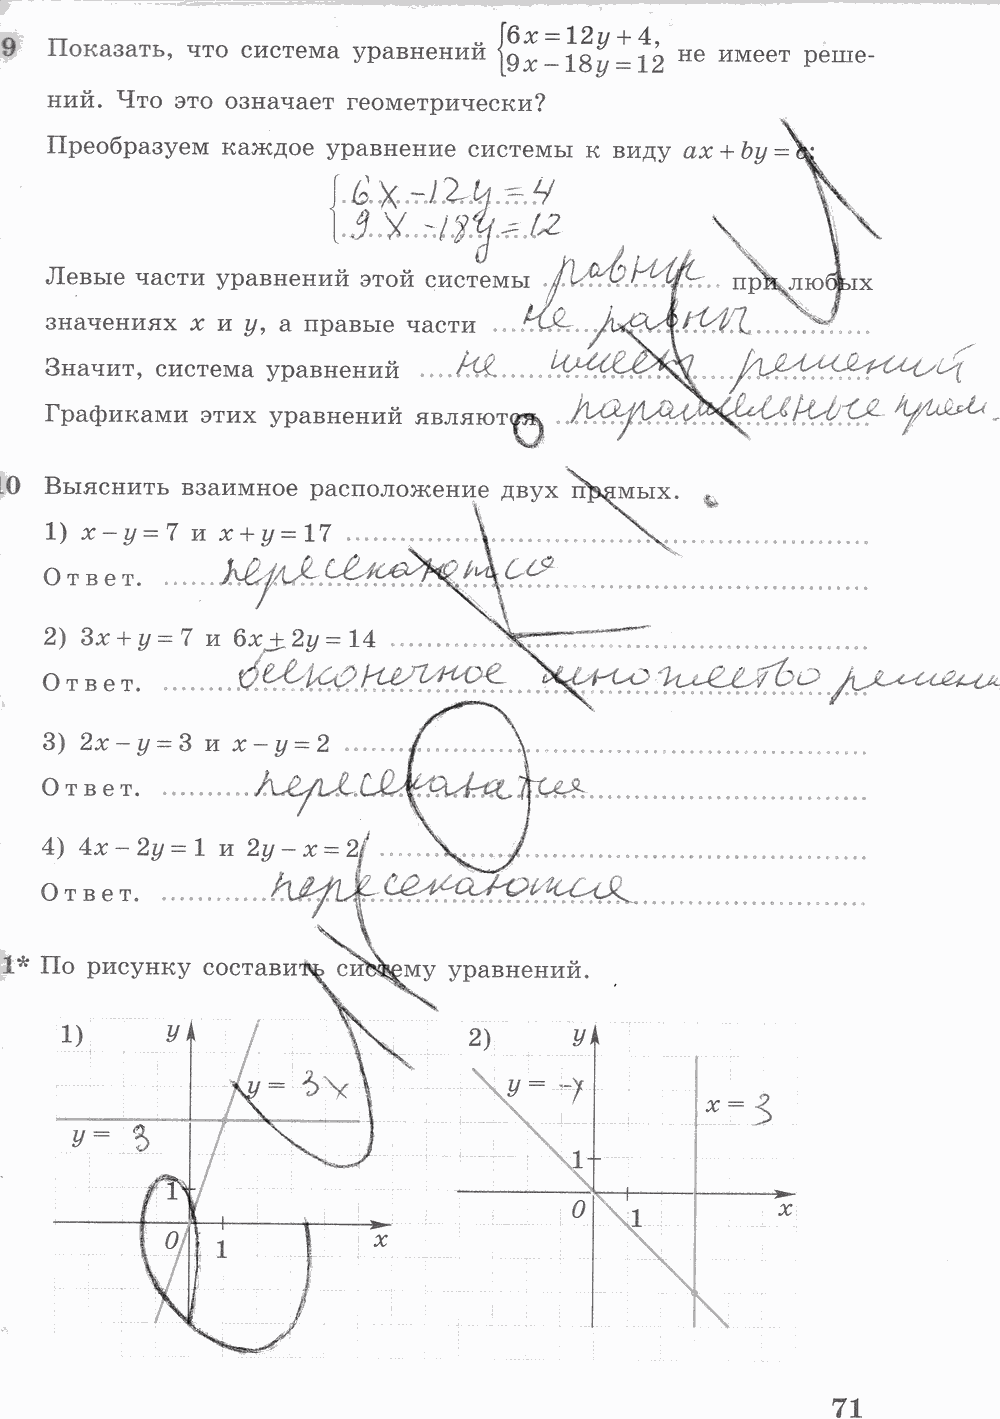 9 Показать, что система уравнений {6x = 12y + 4, 9x – 18y = 12 не имеет реше-
ний. Что это означает геометрически?
Преобразуем каждое уравнение системы к виду ax + by = c:
6x – 12y = 4
9x – 18y = 12
Левые части уравнений этой системы равны при любых
значениях x и y, а правые части не равны
Значит, система уравнений не имеет решений
Графиками этих уравнений являются параллельные прям.
10 Выяснить взаимное расположение двух прямых.
1) x – y = 7 и x + y = 17
Ответ. пересекаются
2) 3x + y = 7 и 6x + 2y = 14
Ответ. бесконечное множество решени
3) 2x – y = 3 и x – y = 2
Ответ. пересекаются
4) 4x – 2y = 1 и 2y – x = 2
Ответ. пересекаются
1* По рисунку составить систему уравнений.
1) y
y = 3x
y = 3
1
0 1 x
2) y
y = –x
x = 3
1
0 1 x
71